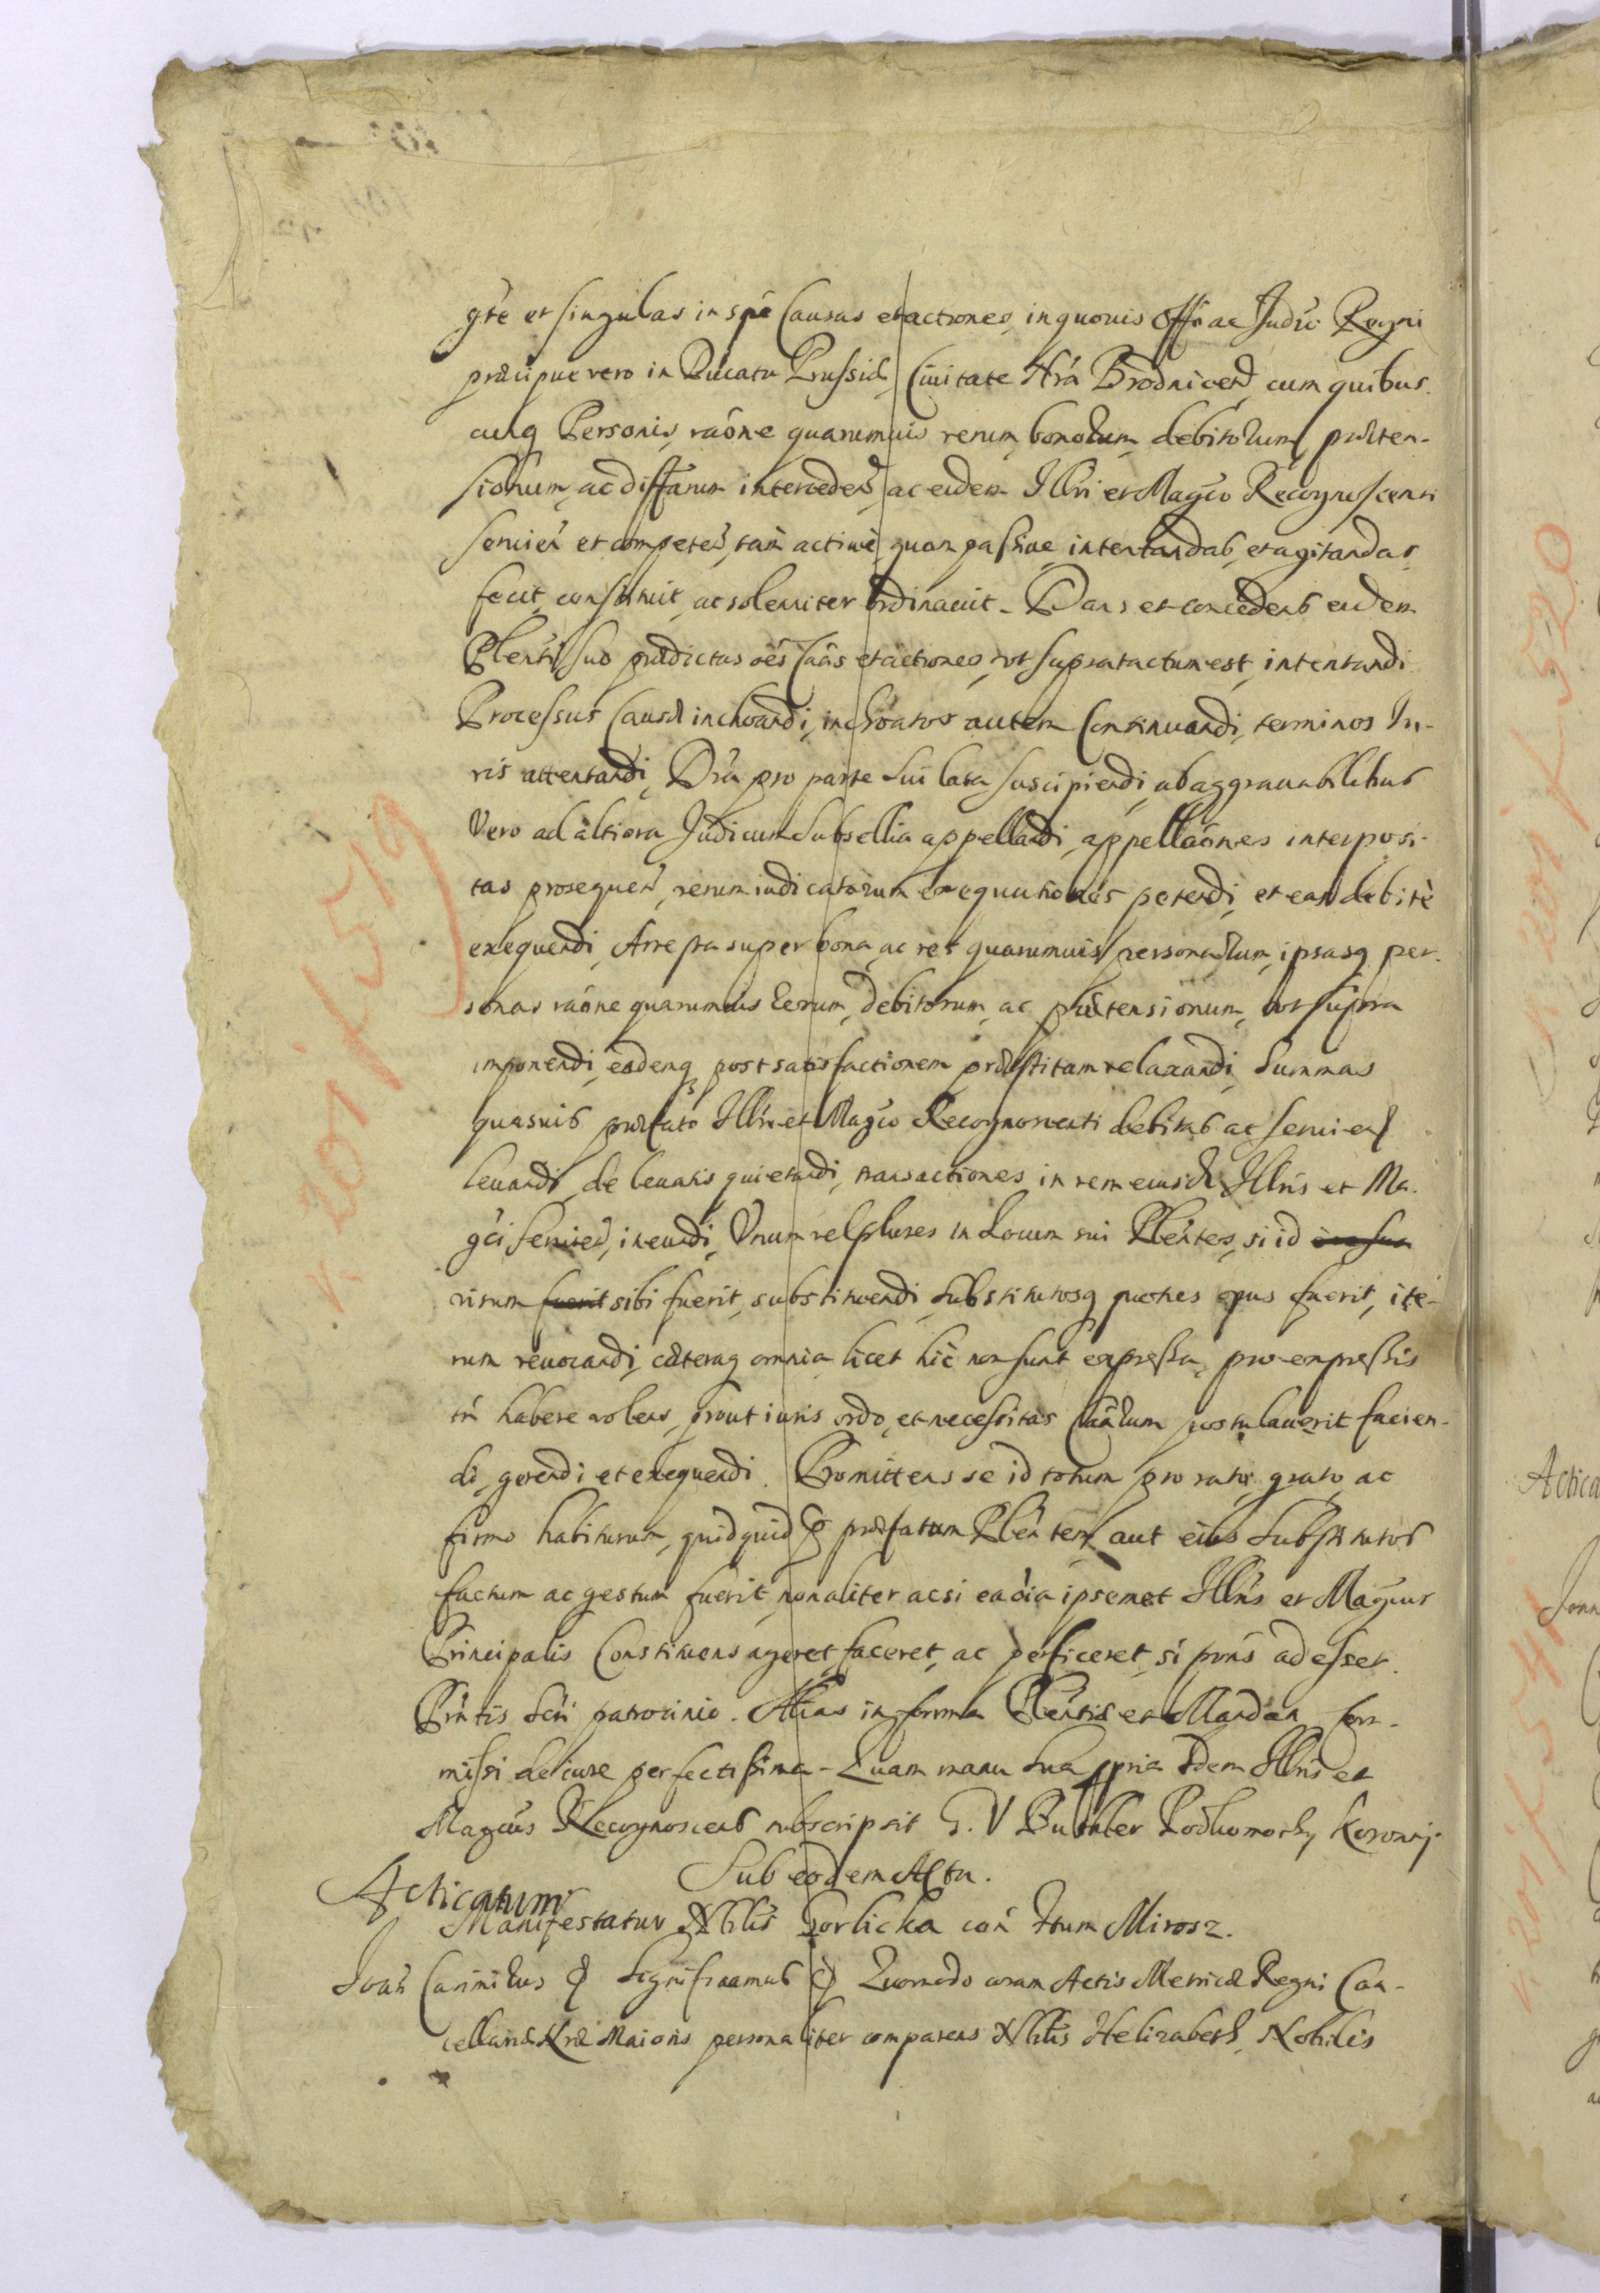 gr̃e et singulas in sp̃e Causas et actiones, in quovis Offo ac Judō Regni
præcipue vero in Ducatu Prussiæ Civitate Nr̃a Brodnicen, cum quibus
cunq Personis, raōne quarumvis rerum, bonorum, debitorum, præten-
sionum, ac diffarum interceden, ac eidem Illri et Magco Recognoscenti
servien et competen, tam active quam passive, intentandas, et agitandas,
fecit, constituit, ac solenniter ordinavit. Dans et concedens eidem
Plenti suo prædictas oẽs Caãs et actiones, vt supra tactum est, intentandi
Processus Causæ inchoandi, inchoatos autem Continuandi, terminos Ju-
ris attentandi, Dr̃a pro parte sui lata suscipiendi, ab aggravabilibus
Vero ad altiora Judicum Subsellia appellandi, appellaōnes interposi-
tas prosequen, rerum iudicatarum exequutiones petendi, et eas debitè
exequendi, Arresta super bona, ac res quarumvis personarum, ipsasq per-
sonas raōne quarumvis rerum, debitorum, ac prætensionum, vt supra
imponendi, eademq post satisfactionem præstitam relaxandi, Summas
quasvis præfato Illri et Magco Recognoscenti debitas ac servien
levandi, de levatis quietandi, transactiones in rem eiusdē Illris et Ma-
gci servien, ineundi, Unum vel plures in Locum sui Plentes, si id
visum fuerit sibi fuerit, substituendi, Substitutosq quoties opus fuerit, ite-
rum revocandi, cæteraq omnia, licet hic non sunt expressa, pro expressis
tñ habere volens, prout iuris ordo, et necessitas Caãrum postulaverit facien-
di, gerendi et exequendi. Promittens se id totum pro rato, grato, ac
firmo habiturum, quidquid p præfatum Plentem aut eius Substitutos
factum ac gestum fuerit, non aliter ac si ea oĩa ipsemet Illris et Magcus
Principalis Constituens ageret, faceret, ac perficeret, si pr̃ns adesset.
Pr̃ntis Scri patrocinio. Alias in forma Plentis et Mandan
missi de iure perfectissima. Quam manu sua ppria Idem Illris et
Magcus Recognoscens subscripsit G. V Butler Podkomorzy Koronny
Sub eodem Actu.
Acticatum
Manifestatur Nblis Gorlicka con Ntum Mirosz.
Joañ Casimirus & Significamus & Quomodo coram Actis Metricæ Regni Can-
cellariæ Nr̃æ Maioris personaliter comparens Nblis Helizabeth, Nobilis